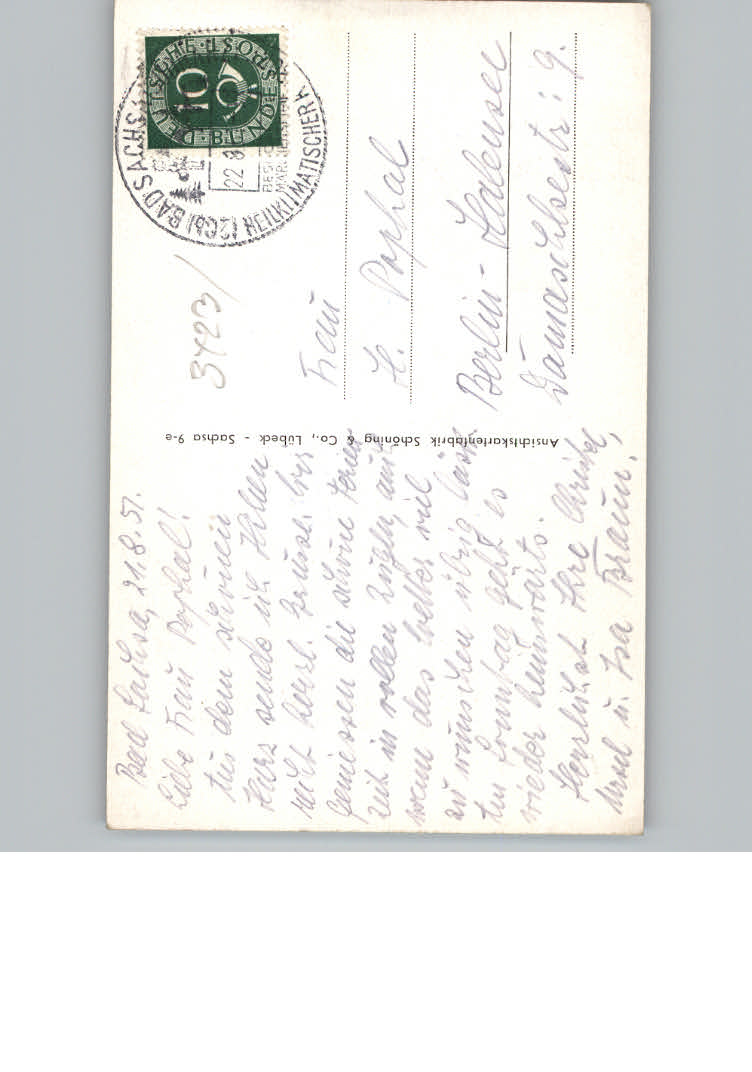 Bad Sachsa, 21.8.51.
Liebe Frau Pophal!
Aus dem schönen
Harz sende ich Ihnen
recht herzl. Grüsse. Wir
geniessen die schöne Ferien
zeit in vollen Zügen, auch
wenn das Wetter viel
zu wünschen übrig lässt.
Am Sonntag geht es
wieder heimwärts.
Herzlichst Ihre Christel
u. Isa Braun.
Ansichtskartenfabrik Schöning & Co., Lübeck - Sachsa 9-e
DEUTSCHE BUNDESPOST
10
(20b) BAD SACHSA
HEILKLIMATISCHER
22.8
3423/
Frau
H. Pophal
Berlin-Halensee
Damaschkestr: 9.